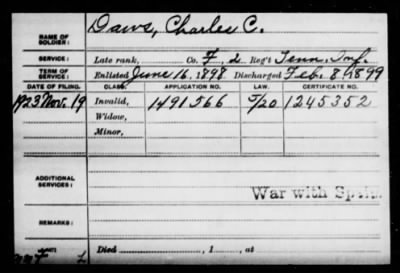 Daws, Charles C.
NAME OF SOLDIER:
SERVICE: Late rank, Co. F, 2 Reg't Tenn. Inf.
TERM OF SERVICE: Enlisted June 16, 1898 Discharged Feb. 8, 1899
DATE OF FILING. CLASS. APPLICATION NO. LAW. CERTIFICATE NO.
1923 Nov. 19 Invalid, 1491.566 5/20 1245352
Widow,
Minor,
ADDITIONAL SERVICES:
War with Spain
REMARKS:
Died , 1 , at